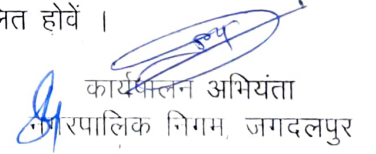 त होवें ।
कार्यपालन अभियंता
नगरपालिक निगम, जगदलपुर